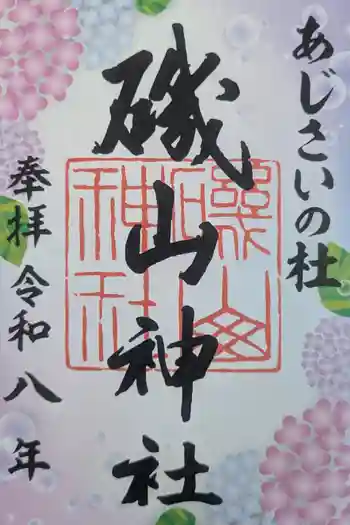 あじさいの杜
磯山神社
奉拝 令和八年
磯山神社